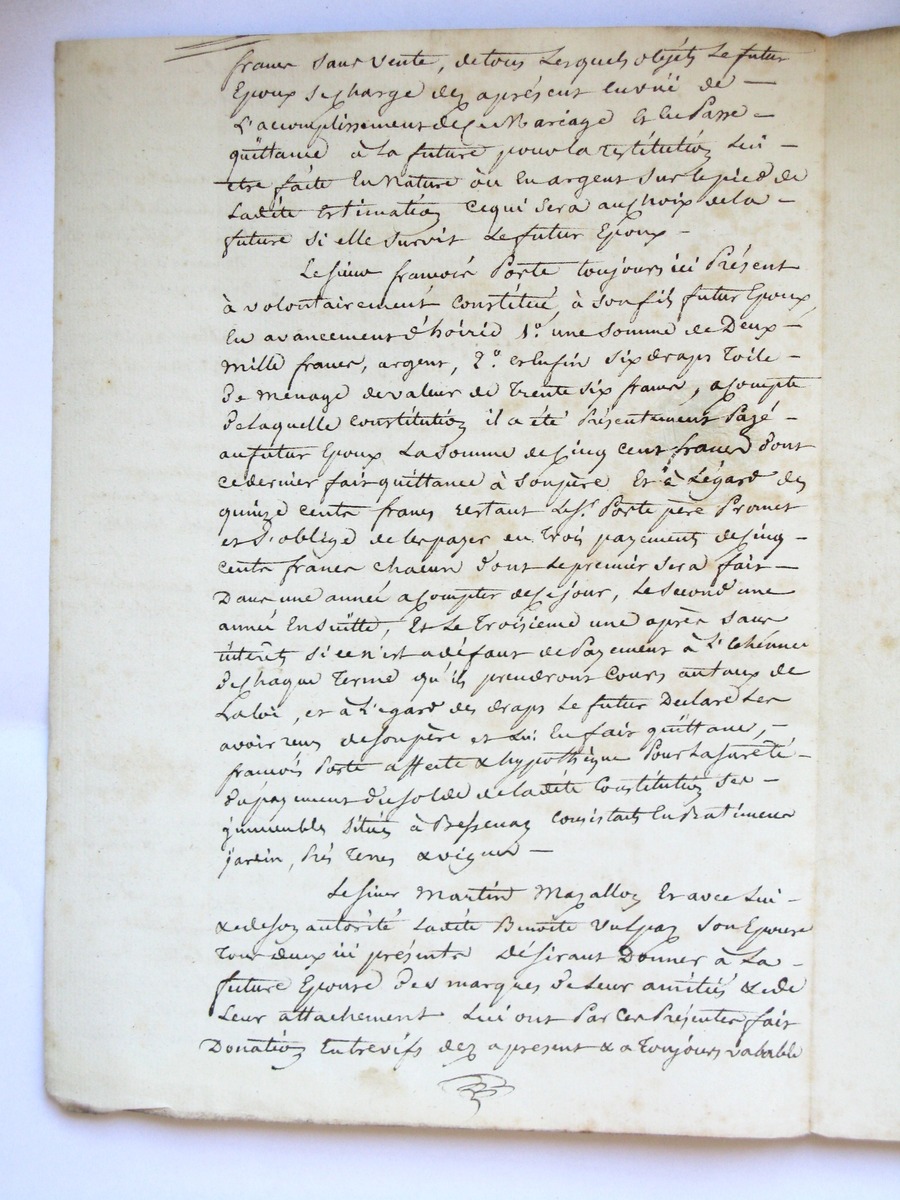 francs sans vente, de tous lesquels objets le futur
Epoux se charge dez aprésent en vüe de —
L'accomplissement de ce Mariage et en Passe —
quittance à la future pour la restitution lui —
etre faite En Nature ou En argent sur le pied de
Ladite Estimation ce qui sera au choix de la —
future si elle survit le futur Epoux —
Le sieur francois Porte toujours ici Présent
à volontairement Constitué, à son fils futur Epoux,
En avancement d'hoirie 1.º une somme de Deux —
mille francs, argent, 2.º et Enfin six draps Toile —
De ménage de valeur de Trente six francs, a compte
De laquelle Constitution il a été Présentement Payé —
au futur Epoux La somme de Cinq cent francs dont
ce dernier fait quittance à son père Et à L'égard des
quinze cents francs restant Le S.r Porte père Promet
et s'oblige de les payer en Trois payements de Cinq —
cents francs chacun dont le premier sera fait —
Dans une année a compter de ce jour, le second une
année Ensuitte, Et Le Troisieme une après sans
interêts si ce n'est a défaut de Payement à L'Echéance
De chaque Terme qu'ils prendront Cours au taux de
La loi, et à L'égard des draps Le futur Déclare Les
avoir reçus de son père et lui En fait quittance, —
francois Porte affecte & hypothèque Pour la sureté —
du payement du solde de ladite Constitution ses —
immeubles Situés à Bessenay Consistants En Batiments
jardin, Prés Terres & vignes —
Le sieur Martin Mazallon Et avec Lui —
& de son autorité Ladite Benoite Vulpaz son Epouse
Tous deux ici présents Désirant Donner à La —
future Epouse Des marques De Leur amitiés & de
Leur attachement Lui ont Par Ces Présentes fait
Donation Entrevifs dez a present & a Toujours valable